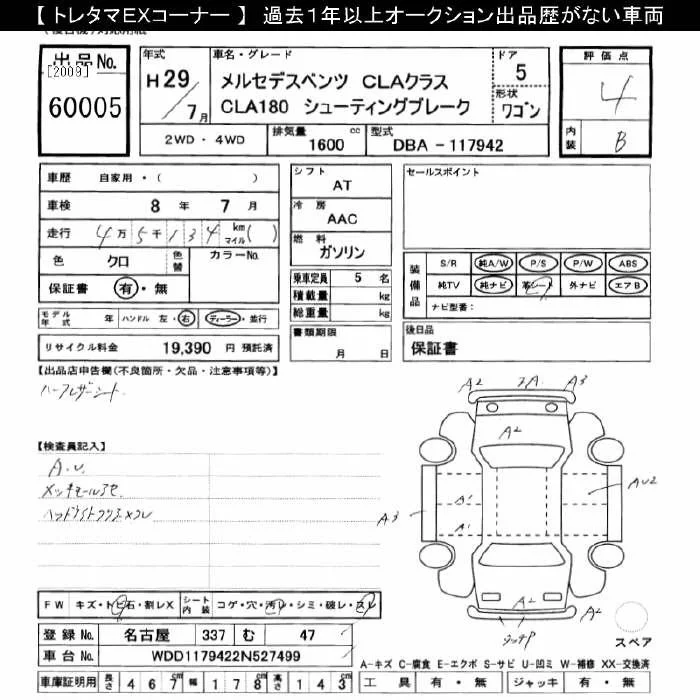 【 トレタマEXコーナー 】 過去1年以上オークション出品歴がない車両
出 品 No.
[2009]
60005
年式
H29
7月
車名・グレード
メルセデスベンツ CLAクラス
CLA180 シューティングブレーク
ドア
5
形状
ワゴン
2WD ・ 4WD
排気量
1600 cc
型式
DBA - 117942
評 価 点
4
内装
B
車歴 自家用・( )
車検 8 年 7 月
走行 4万 5千 1 3 4 km マイル( )
色 クロ
色替
カラーNo.
保証書 有・無
モデル年式 年 ハンドル 左・右 ディーラー・並行
リサイクル料金 19,390 円 預託済
シフト
AT
冷 房
AAC
燃 料
ガソリン
乗車定員 5 名
積載量 kg
総重量 kg
書類期限
月 日
セールスポイント
装備品
S/R 純A/W P/S P/W ABS
純TV 純ナビ 革シート 外ナビ エアB
ナビ型番:
後日品
保証書
【出品店申告欄(不良箇所・欠品・注意事項等)】
ハーフレザーシート
【検査員記入】
A.U.
メッキモールアセ
A2
A3
A2
A1
A1
AU2
A3
A2
A2
スペア
FW キズ・トビ石・割レX
シート内装 コゲ・穴・汚レ・シミ・破レ・スレ
登 録 No. 名古屋 337 む 47
車 台 No. WDD1179422N527499
車庫証明用 長さ 4 6 7 幅 1 7 8 高さ 1 4 3
A-キズ C-腐食 E-エクボ S-サビ U-凹ミ W-補修 XX-交換済
工 具 有 ・ 無 ジャッキ 有 ・ 無